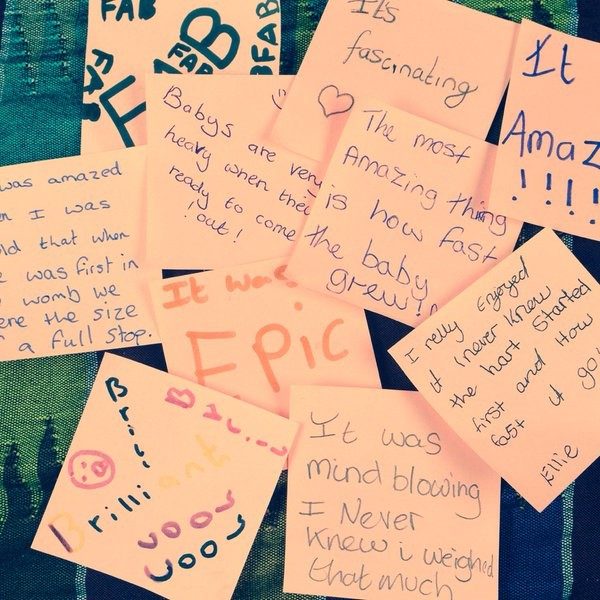 FAB
FAB
FAB
FAB
It's
fascinating
It
Amaz
!!!!
Babys are very
heavy when their
ready to come
!out!
The most
Amazing thing
is how fast
the baby
grew!!
was amazed
I was
that when
was first in
womb we
the size
a full stop.
It was
EPiC
I relly Enjoyed
it inever Knew
the hart Started
first and How
fast it go
Ellie
Brilliant
It was
mind blowing
I Never
Knew i weighed
that much